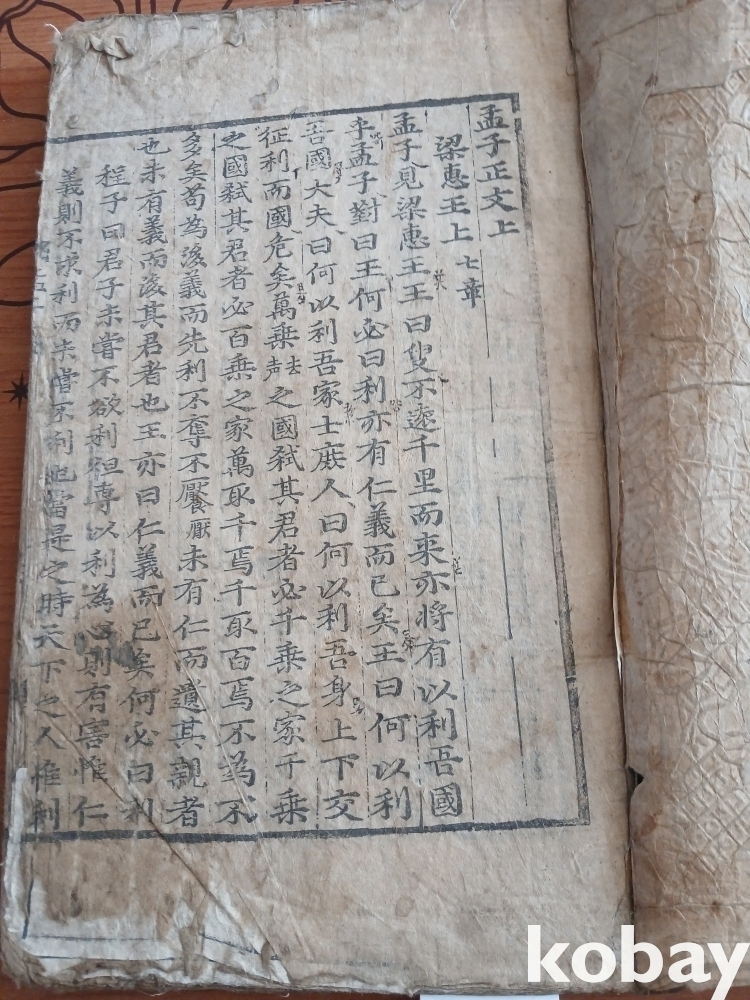 孟子正文上
梁惠王上 七章
孟子見梁惠王王曰叟不遠千里而来亦將有以利吾國
乎孟子對曰王何必曰利亦有仁義而已矣王曰何以利
吾國大夫曰何以利吾家士庶人曰何以利吾身上下交
征利而國危矣萬乗去声之國弑其君者必千乗之家千乗
之國弑其君者必百乗之家萬取千焉千取百焉不為不
多矣苟為後義而先利不奪不饜厭未有仁而遺其親者
也未有義而後其君者也王亦曰仁義而已矣何必曰利
程子曰君子未嘗不欲利但專以利為心則有害惟仁
義則不求利而未嘗不利也當是之時天下之人惟利
kobay